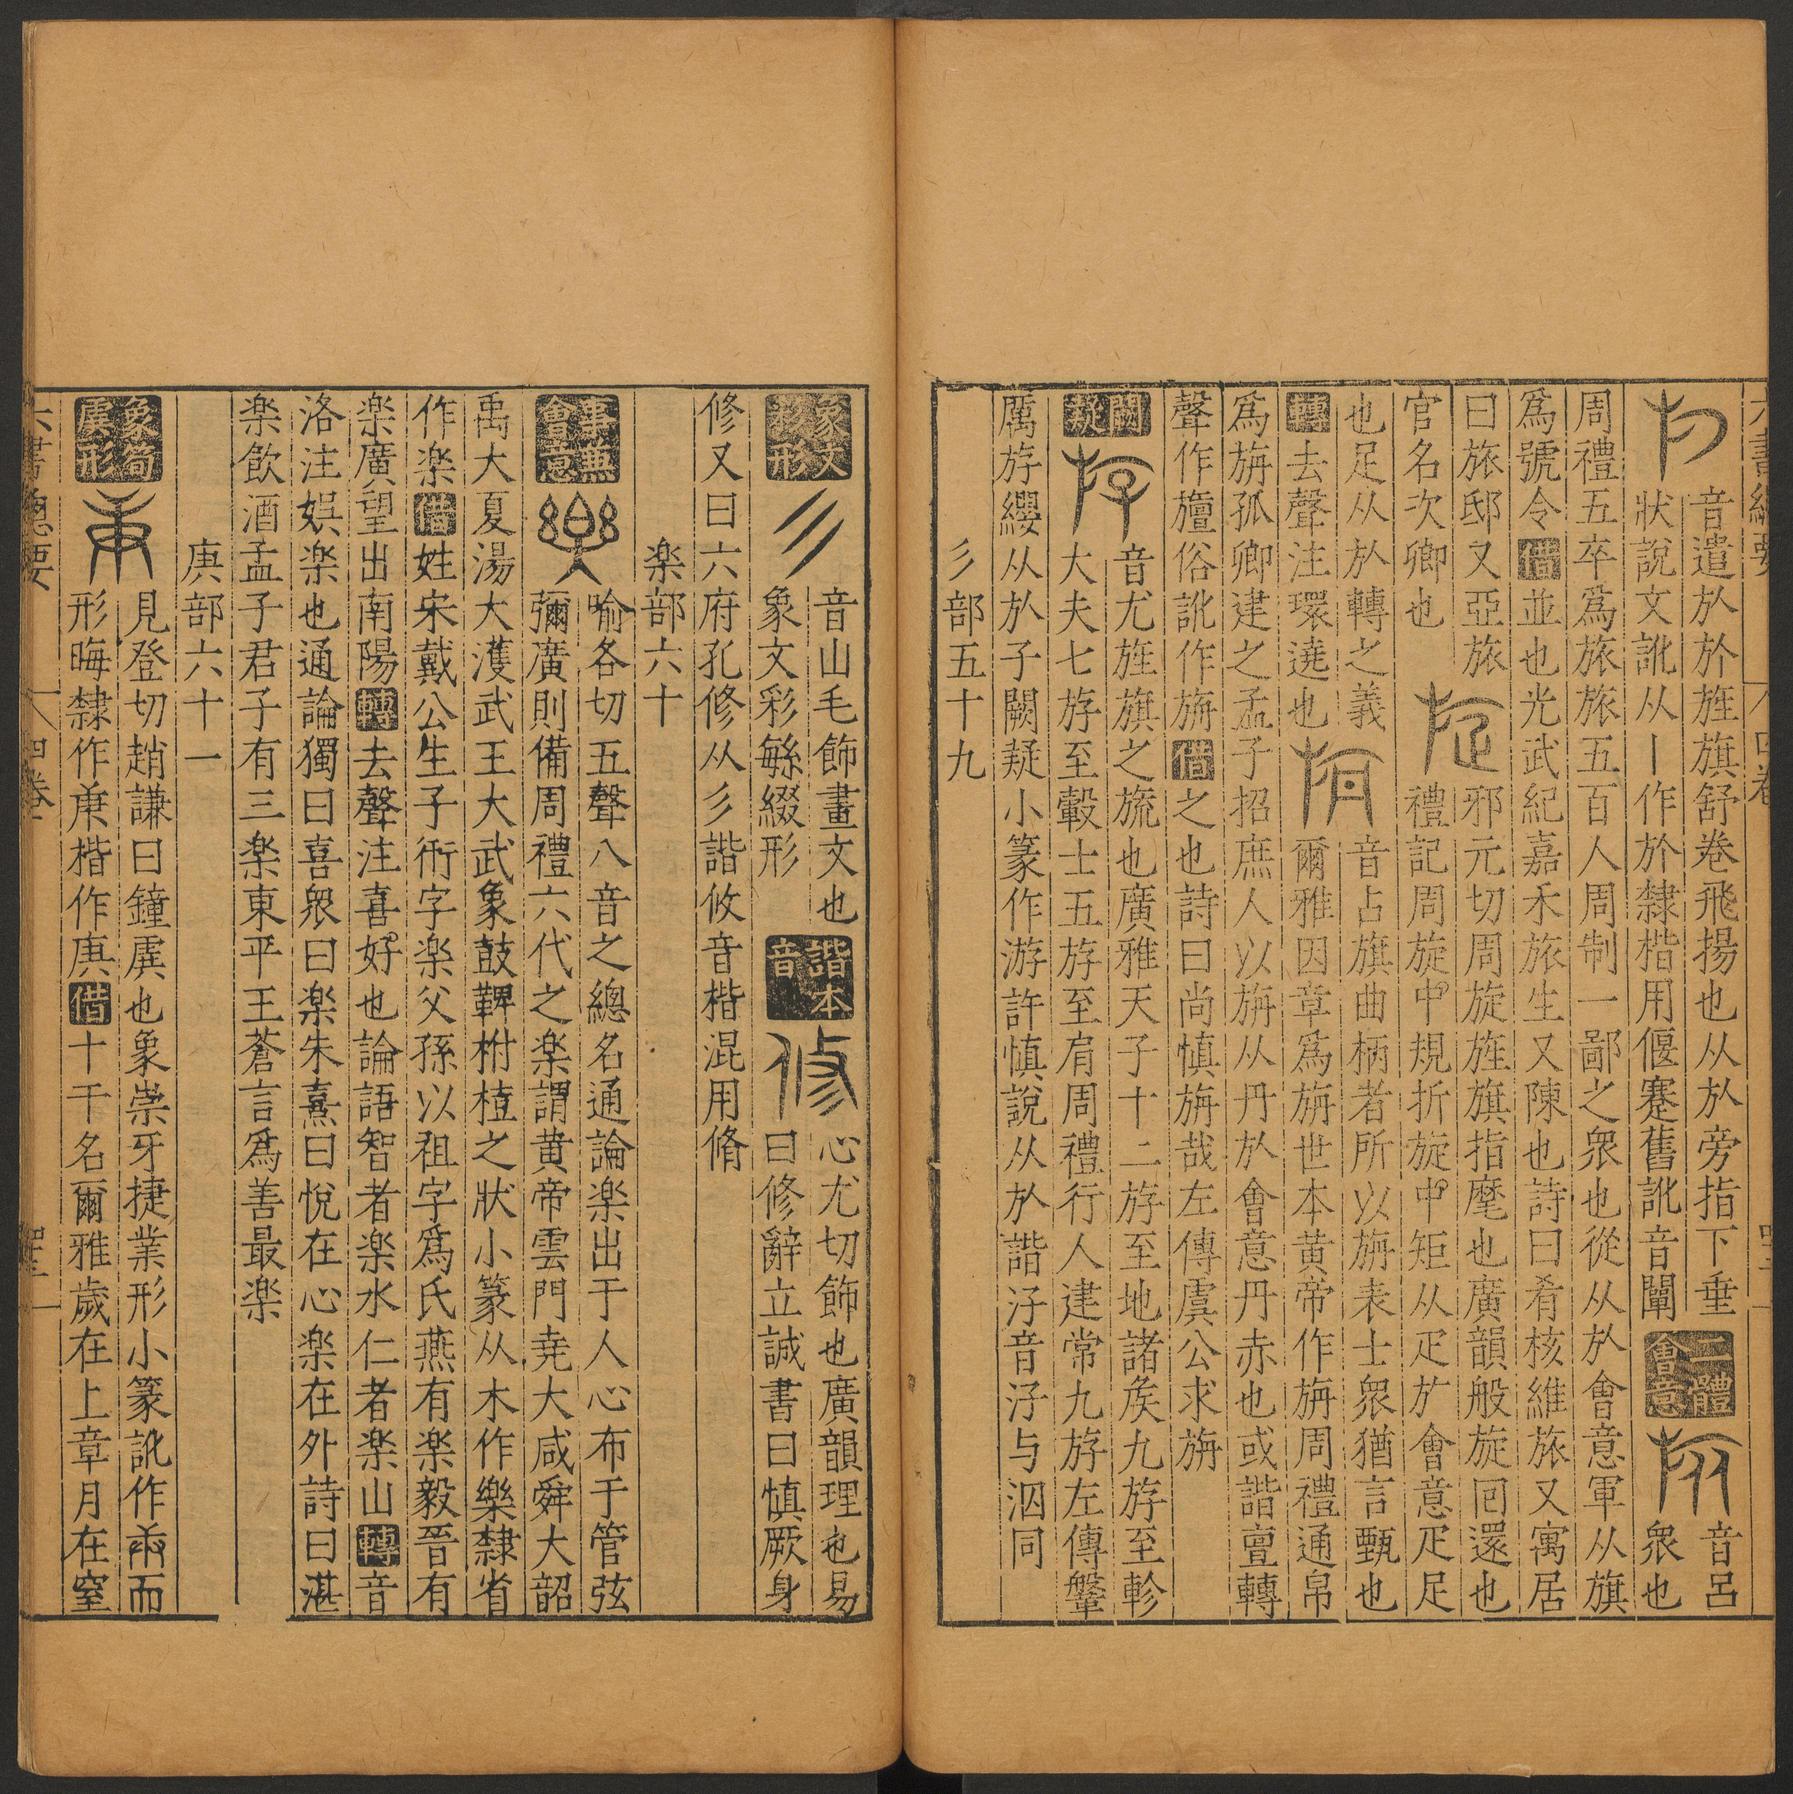 六書總要 四卷
音遣㫃於旌旗舒卷飛揚也从㫃旁指下垂
狀說文訛从丨作於隸楷用偃蹇舊訛音闡 二體會意 音呂 衆也
周禮五卒爲旅旅五百人周制一鄙之衆也從从㫃會意軍从旗
爲號令 借 並也光武紀嘉禾旅生又陳也詩曰肴核維旅又寓居
曰旅邸又亞旅
官名次卿也 邪元切周旋旌旗指麾也廣韻般旋回還也
禮記周旋中規折旋中矩从疋㫃會意疋足
也足从㫃轉之義 音占旗曲柄者所以旃表士衆猶言甄也
轉 去聲注環遶也 爾雅因章爲旃世本黃帝作旃周禮通帛
爲旃孤卿建之孟子招庶人以旃从丹㫃會意丹赤也或諧亶轉
聲作旜俗訛作旃 借 之也詩曰尚慎旃哉左傳虞公求旃
闕疑 音尤旌旗之旒也廣雅天子十二斿至地諸矦九斿至軫
大夫七斿至轂士五斿至肩周禮行人建常九斿左傳鞶
厲斿纓从㫃子闕疑小篆作游許慎說从㫃諧汓音汓与泅同
彡部五十九
象文彩形 彡 音山毛飾畫文也
象文彩毵綴形 諧本音 修 心尤切飾也廣韻理也易
曰修辭立誠書曰慎厥身
修又曰六府孔修从彡諧攸音楷混用脩
楽部六十
事無會意 喻各切五聲八音之總名通論楽出于人心布于管弦
彌廣則備周禮六代之楽謂黃帝雲門堯大咸舜大韶
禹大夏湯大濩武王大武象鼓鞞柎植之狀小篆从木作樂隸省
作楽 借 姓宋戴公生子衎字楽父孫以祖字爲氏燕有楽毅晉有
楽廣望出南陽 轉 去聲注喜好也論語智者楽水仁者楽山 轉 音
洛注娯楽也通論獨曰喜衆曰楽朱熹曰悅在心楽在外詩曰湛
楽飲酒孟子君子有三楽東平王蒼言爲善最楽
庚部六十一
象筍虡形 見登切趙謙曰鐘虡也象崇牙捷業形小篆訛作𢆉而
形晦隸作庚楷作庚 借 十干名爾雅歲在上章月在窒
六書總要 四卷